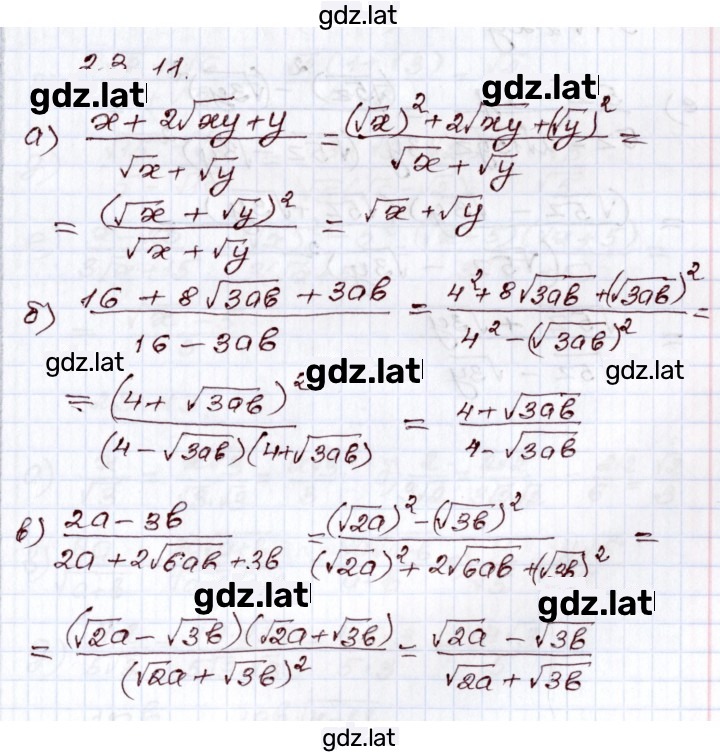 gdz.lat
2.2 11.
gdz.lat gdz.lat
а) (x + 2√xy + y)/(√x + √y) = ((√x)² + 2√xy + (√y)²)/(√x + √y) =
= (√x + √y)²/(√x + √y) = √x + √y
б) (16 + 8√3ab + 3ab)/(16 - 3ab) = (4² + 8√3ab + (√3ab)²)/(4² - (√3ab)²) =
gdz.lat gdz.lat gdz.lat
= (4 + √3ab)²/((4 - √3ab)(4 + √3ab)) = (4 + √3ab)/(4 - √3ab)
в) (2a - 3b)/(2a + 2√6ab + 3b) = ((√2a)² - (√3b)²)/((√2a)² + 2√6ab + (√3b)²) =
gdz.lat gdz.lat
= ((√2a - √3b)(√2a + √3b))/(√2a + √3b)² = (√2a - √3b)/(√2a + √3b)
gdz.lat